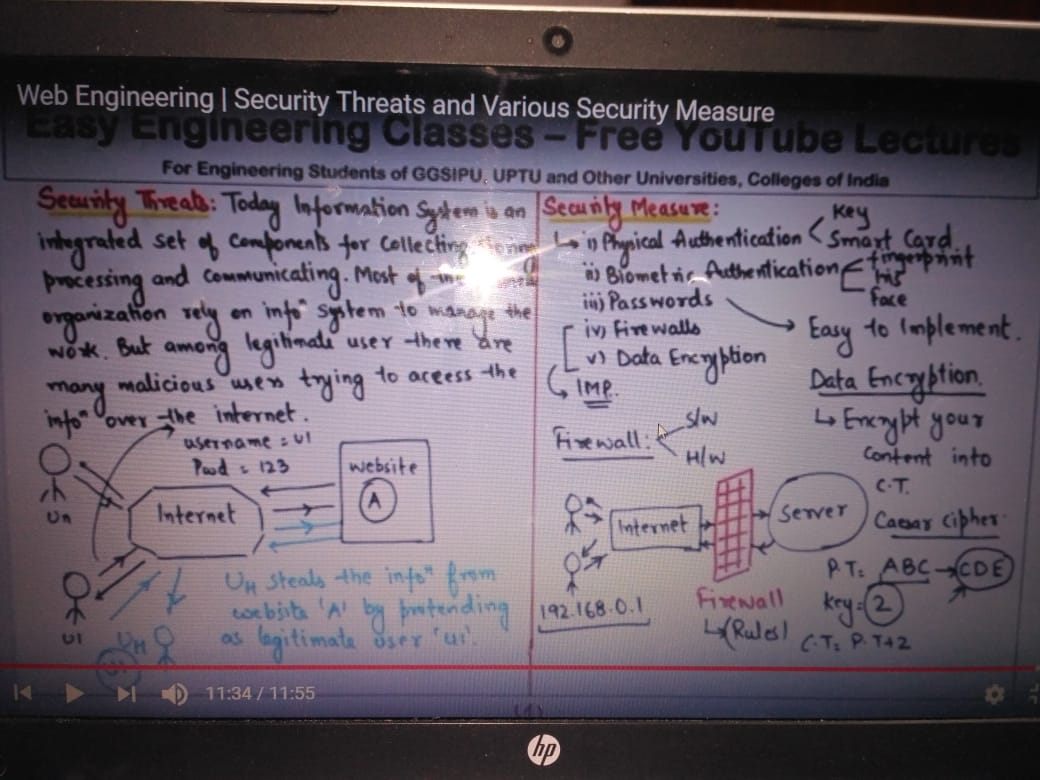 Web Engineering | Security Threats and Various Security Measure
Easy Engineering Classes – Free YouTube Lectures
For Engineering Students of GGSIPU, UPTU and Other Universities, Colleges of India
Security Threats: Today Information System is an
integrated set of components for collecting
processing and communicating. Most of the
organization rely on infoⁿ system to manage the
work. But among legitimate user there are
many malicious users trying to access the
infoⁿ over the internet.
username = U1
Pwd = 123
website
A
Internet
Un
U1
UH
UH steals the infoⁿ from
website 'A' by pretending
as legitimate user 'U1'.
Security Measure:
i) Physical Authentication
Key
Smart Card
ii) Biometric Authentication
fingerprint
Iris
Face
iii) Passwords
Easy to Implement.
iv) Firewalls
v) Data Encryption
IMP.
Firewall:
S/W
H/W
Internet
Server
192.168.0.1
Firewall
(Rules)
Data Encryption.
Encrypt your
Content into
C.T.
Caesar Cipher
P.T: ABC → CDE
Key = 2
C.T: P.T+2
11:34 / 11:55
hp